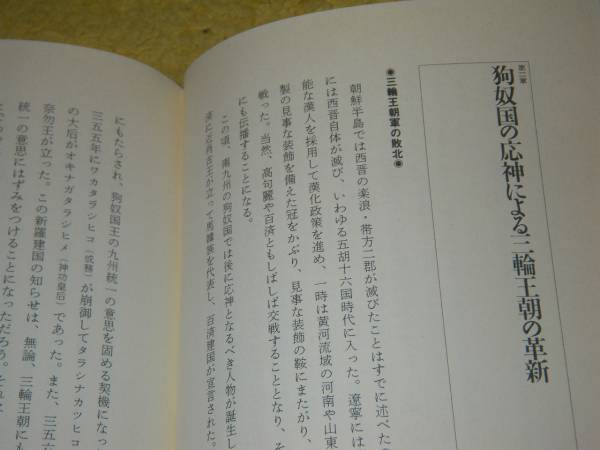 第二章
狗奴国の応神による三輪王朝の革新
●三輪王朝軍の敗北●
朝鮮半島では西晋の楽浪・帯方二郡が滅びたことはすでに述べた
には西晋自体が滅び、いわゆる五胡十六国時代に入った。遼寧には
能な漢人を採用して漢化政策を進め、一時は黄河流域の河南や山東
製の見事な装飾を備えた冠をかぶり、見事な装飾の鞍にまたがり、
戦った。当然、高句麗や百済ともしばしば交戦することとなり、そ
にも伝播することになる。
この頃、南九州の狗奴国では後に応神となるべき人物が誕生し
済に近肖古王が立って馬韓族を代表し、百済建国が宣言された。
にもたらされ、狗奴国王の九州統一の意思を固める契機になっ
三五五年にワカタラシヒコ（成務）が崩御してタラシナカツヒコ
の大后がオキナガタラシヒメ（神功皇后）であった。また、三五六
奈勿王が立った。この新羅建国の知らせは、無論、三輪王朝にも
統一の意思にはずみをつけることになっただろう。それと